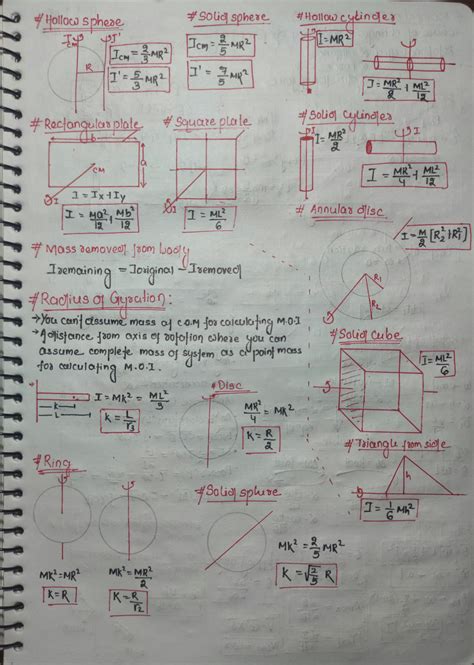 # Hollow sphere
Icm
I'
R
Icm = 2/3 MR²
I' = 5/3 MR²
# Solid sphere
Icm = 2/5 MR²
I' = 7/5 MR²
# Hollow cylinder
I = MR²
I = MR²/2 + ML²/12
# Rectangular plate
b
a
CM
I
I = Ix + Iy
I = Ma²/12 + Mb²/12
# Square plate
I
I = ML²/6
# Solid Cylinder
I
I = MR²/2
I
I = MR²/4 + ML²/12
# Annular disc
I = M/2 [R₂² + R₁²]
R₁
R₂
# Mass removed from body
Iremaining = Ioriginal - Iremoved
# Radius of Gyration:
→ You can't assume mass at C.O.M for calculating M.O.I
→ A distance from axis of rotation where you can
assume complete mass of system as a point mass
for calculating M.O.I.
K
L
I = MK² = ML²/3
K = L/√3
# Disc
MR²/4 = MK²
K = R/2
# Solid cube
I = ML²/6
# Triangle from side
h
I = 1/6 Mh²
# Ring
MK² = MR²
K = R
MK² = MR²/2
K = R/√2
# Solid sphere
MK² = 2/5 MR²
K = √2/5 R